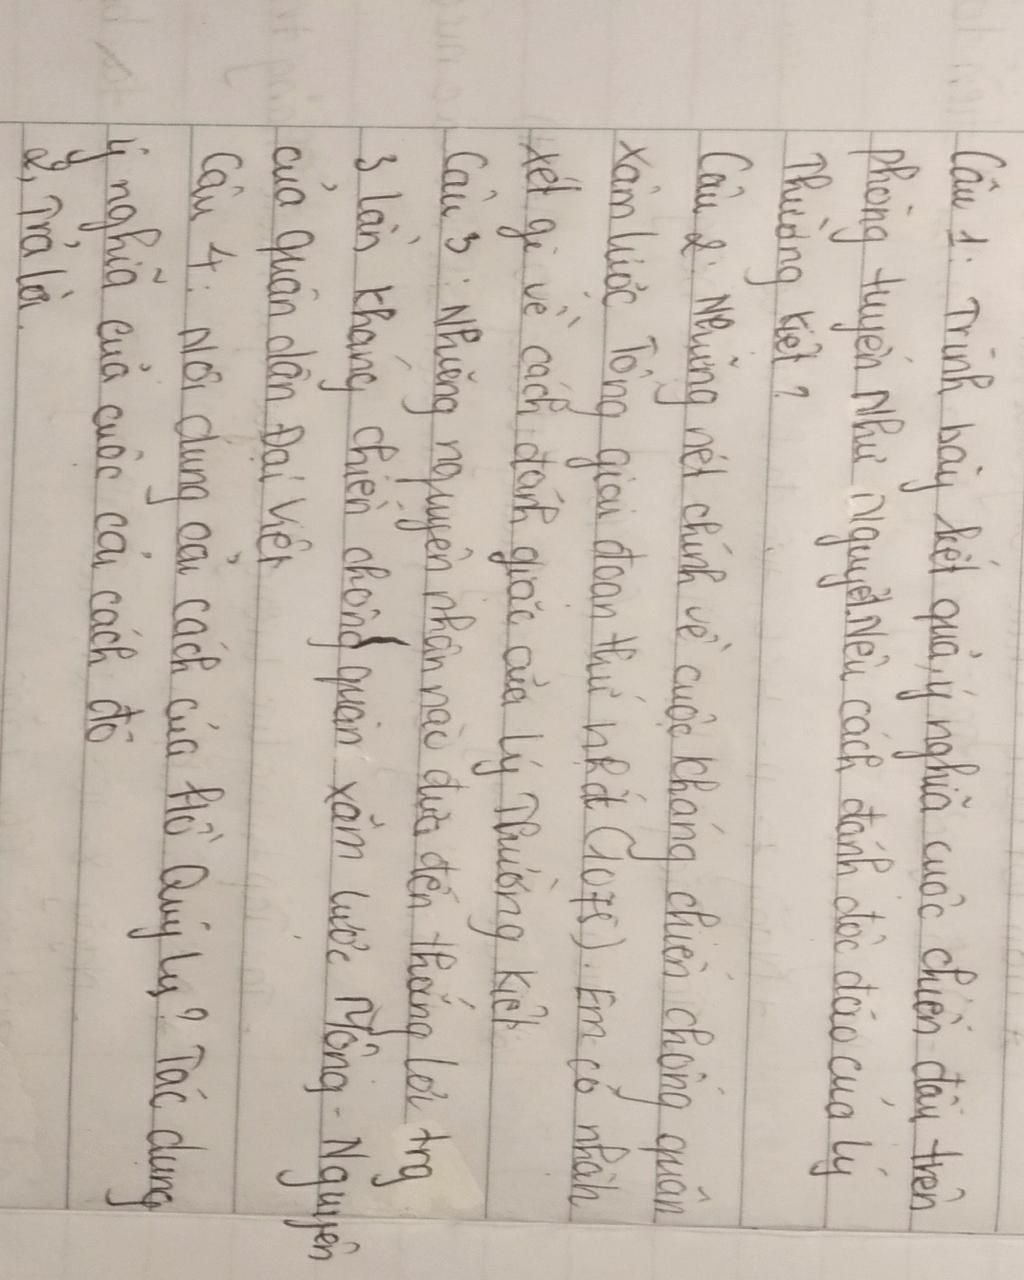 Câu 1: Trình bày kết quả, ý nghĩa cuộc chiến đấu trên
phòng tuyến Như Nguyệt. Nêu cách đánh độc đáo của Lý
Thường Kiệt?
Câu 2: Những nét chính về cuộc kháng chiến chống quân
xâm lược Tống giai đoạn thứ nhất (1075). Em có nhận
xét gì về cách đánh giặc của Lý Thường Kiệt
Câu 3: Những nguyên nhân nào đưa đến thắng lợi trg
3 lần kháng chiến chống quân xâm lược Mông - Nguyên
của quân dân Đại Việt
Câu 4: Nội dung cải cách của Hồ Quý Ly? Tác dụng
ý nghĩa của cuộc cải cách đó
2, Trả lời.